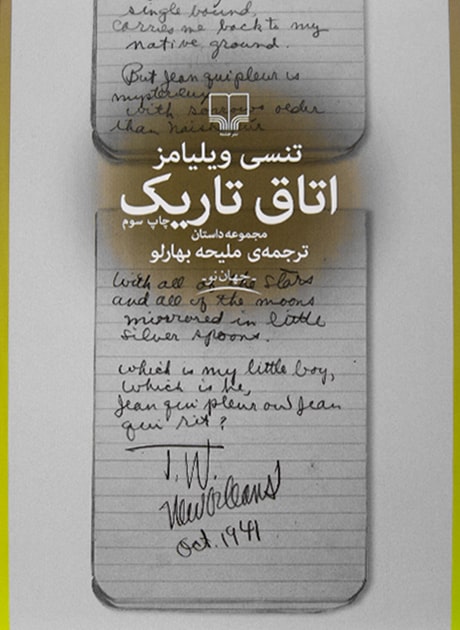 single bound,
carries me back to my
native ground.
But Jean qui pleur is
mysterious
with sorrows older
than
نشر چشمه
تنسی ویلیامز
اتاق تاریک
چاپ سوم
مجموعه داستان
ترجمه‌ی ملیحه بهارلو
- جهان نو -
With all of the stars
and all of the moons
mirrored in little
silver spoons.
which is my little boy,
which is he,
Jean qui pleur ou Jean
qui rit?
T. W.
New Orleans
Oct. 1941